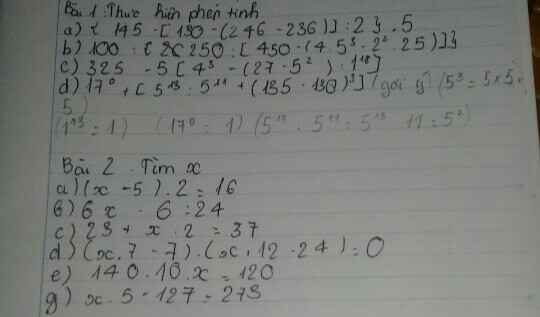 Bài 1: Thực hiện phép tính
a) { 145 - [ 130 - (246 - 236)] : 2 } . 5
b) 100 : { 250 : [ 450 - (4 . 5³ - 2² . 25)]}
c) 325 - 5 [ 4³ - (27 - 5²) : 1¹⁸]
d) 17⁰ + [ 5¹³ : 5¹¹ + (135 - 130)³] (gợi ý) (5³ = 5 x 5 .
5)
(1¹³ = 1) (17⁰ = 1) (5¹³ : 5¹¹ = 5¹³ - 11 = 5²)
Bài 2 . Tìm x
a) (x - 5) . 2 = 16
b) 6 x - 6 = 24
c) 23 + x . 2 = 37
d) (x . 7 - 7) . (x . 12 - 24) = 0
e) 140 - 10 . x = 120
g) x . 5 - 127 = 273